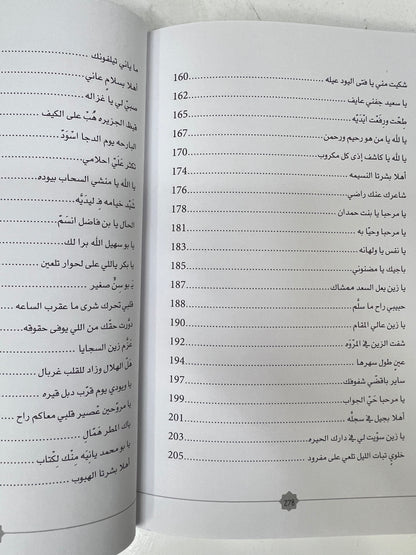 شكيت مني يا فتى اليود عيله ........ 160
يا سعيد جفني عايف ........ 162
طِحْت ورِقَعْت ايْديَّه ........ 165
يا الله يا من هو رحيم ورحمن ........ 167
يا الله يا كاشف إذى كل مكروب ........ 170
أهلا بشرتا النسيمه ........ 174
شاعرك عنك راضي ........ 176
يا مرحبا يا بنت حمدان ........ 178
يا مرحبا وحيّا به ........ 181
يا نفس يا ولهانه ........ 183
باجيك يا مضنوني ........ 185
يا زين يعل السعد ممشاك ........ 187
حبيبي راح ما سلَّم ........ 188
يا زين عالي المقام ........ 190
شفت الزين في المرّوه ........ 192
عينٍ طول سهرها ........ 194
ساير باقضّي شفوفك ........ 197
يا مرحبا حَيّ الجواب ........ 199
أهلا بجيل في سجلّه ........ 201
يا زين سوّيت لي في دارك الحيره ........ 203
خلوي تبات الليل تلعي على مفرود ........ 205
278
ما ياني تيلفونك
أهلا بسلامٍ عاني
صبّي لي يا غزاله
قيظ الجزيره هَبّ على الكيف
البارحه يوم الدجا اسْوَدّ
تكثر عَلَيّ احلامي
يا الله يا منشي السحاب بيوده
شَيّد خيامه في ليديَّه
الحال يا بن فاضل انسَمّ
يا بو سهيل الله برا لك
يا بكر ياللي على لحوار تلعين
يا بو سنٍّ صغير
قلبي تحرك شرى ما عقرب الساعه
دوّرت حقك من اللي يوفى حقوقه
عَزّم زين السجايا
هَلّ الهلال وزاد للقلب غربال
يا ويودي يوم قرّب دبل قيره
يا مروّحين عْصير قلبي معاكم راح
ياك المطر همّال
يا بو محمد يانيّه مِنّك لكْتاب
أهلا بشرتا الهبوب